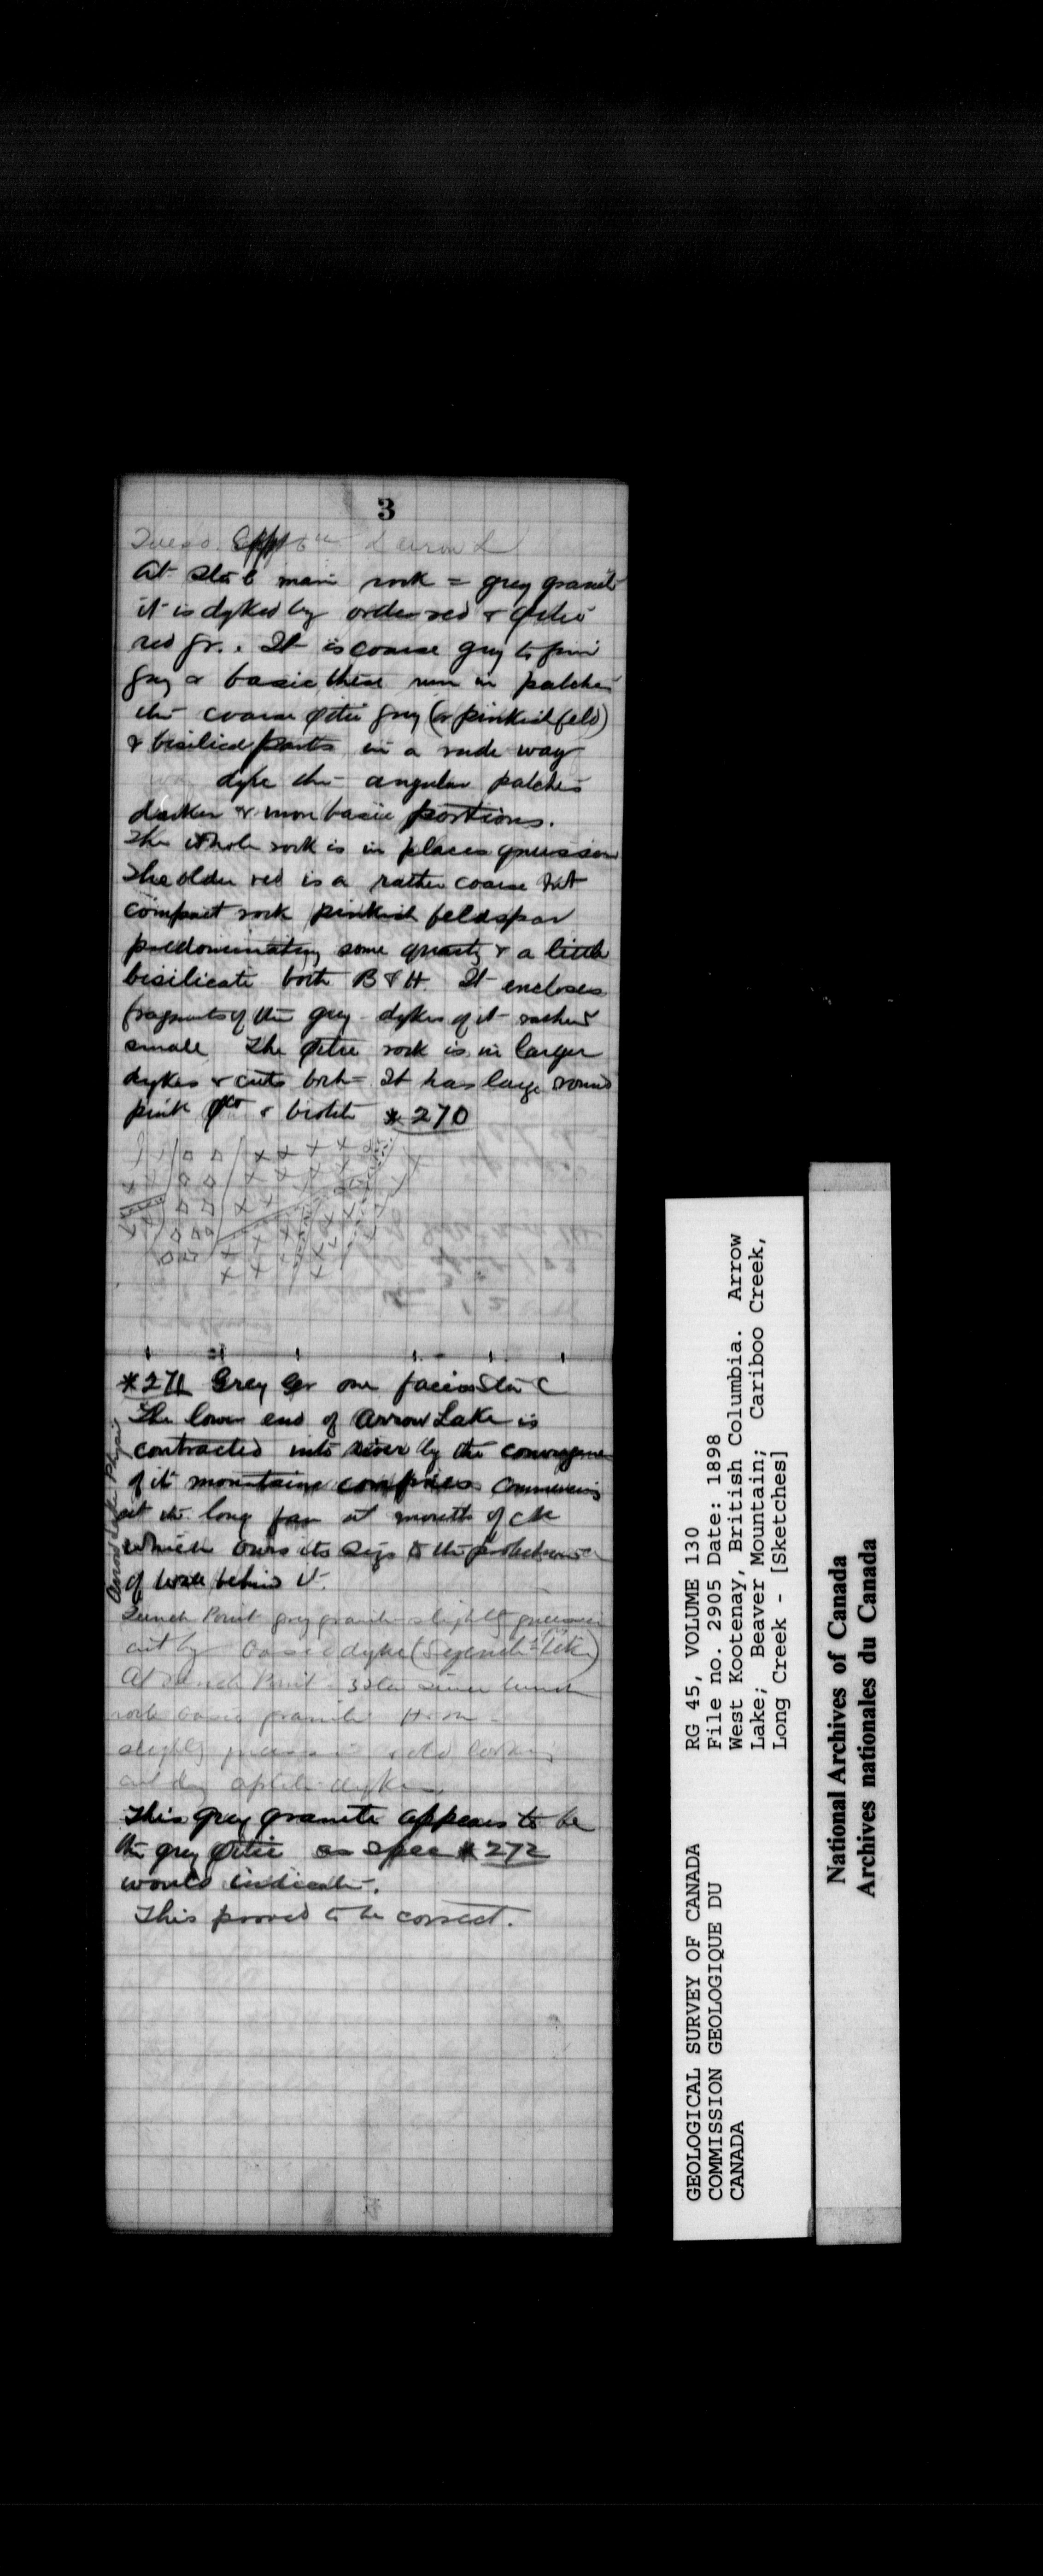 3
Tues. Sept 6th L Arrow L
At Sta 6 main rock = grey granite
it is dyked by older red &
red gr. It is coarse grey to fine
grey & basic these run in patches
the coarse grey (or pinkish feld)
& bisilicated parts in a rude way
dyke the angular patches
darker & more basic portions.
The whole rock is in places gneissic
The older red is a rather coarse but
compact rock pinkish feldspar
predominating some quartz & a little
bisilicate both B & H. It encloses
fragments of the grey - dykes of it rather
small. The rock is in larger
dykes & cuts both = It has large round
pink & biotite *270
*271 Grey Gr one facies Sta C
The lower end of Arrow Lake is
contracted into river by the convergence
of its mountains confines commencing
at the long fan at mouth of ck
which owes its size to the
of behind it.
Arrow Lake Physi.
Lunch Point grey granite slightly gneissic
cut by basic dyke
At Lunch Point - 3 sta since lunch
rock basic granite
slightly gneissic & old looking
cut by aplite dykes
This grey granite appears to be
the grey as spec *272
would indicate.
This proved to be correct.
GEOLOGICAL SURVEY OF CANADA
COMMISSION GEOLOGIQUE DU
CANADA
RG 45, VOLUME 130
File no. 2905 Date: 1898
West Kootenay, British Columbia. Arrow
Lake; Beaver Mountain; Cariboo Creek,
Long Creek - [Sketches]
National Archives of Canada
Archives nationales du Canada